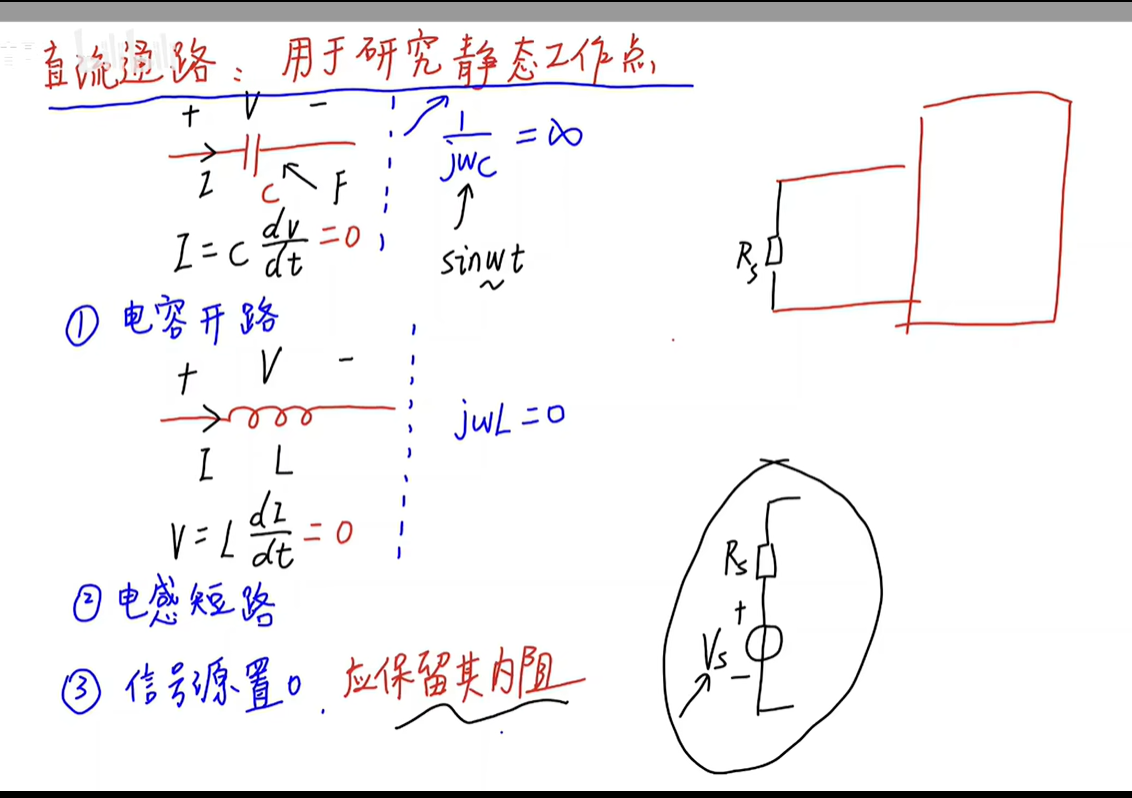 直流通路：用于研究静态工作点
+ V -
I C F
I = C dv/dt = 0
1/jwC = ∞
sinwt
① 电容开路
+ V -
I L
jwL = 0
V = L dI/dt = 0
② 电感短路
③ 信号源置0. 应保留其内阻
Rs
Rs
+
Vs
-